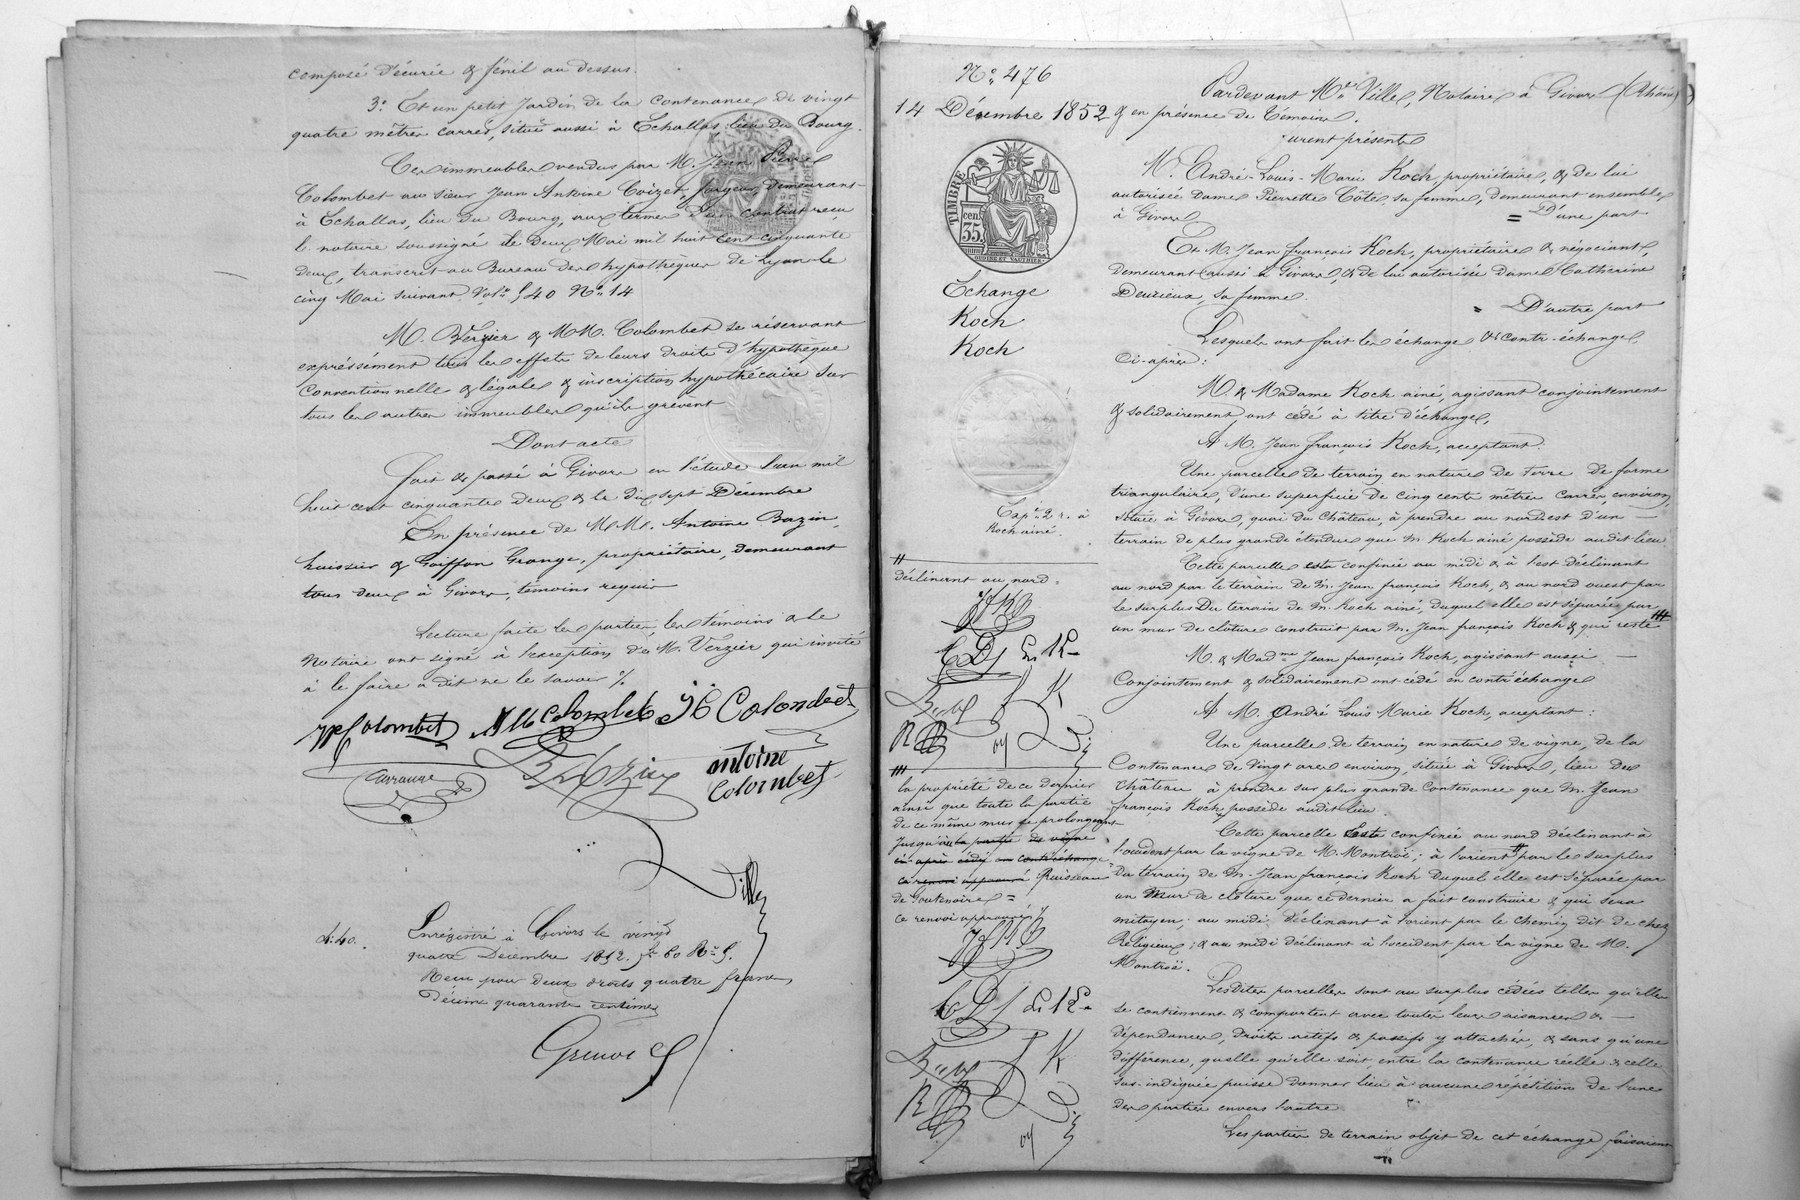 composé d'écurie & fénil au dessus.
3° Et un petit Jardin de la contenance de vingt
quatre mètres carrés, situé aussi à Echallas, lieu du Bourg.
Ces immeubles vendus par M. Jean Pierre
Colombet au sieur Jean Antoine Coizet, forgeur, demeurant
à Echallas, lieu du Bourg, aux termes d'un contrat reçu
le notaire soussigné le deux Mai mil huit cent cinquante
deux, transcrit au Bureau des hypothèques de Lyon le
cinq Mai suivant Vol. 540 N° 14
M. Verzier & MM. Colombet se réservant
expréssément tous les effets de leurs droits d'hypothèque
Conventionnelle & légale & inscription hypothécaire sur
tous les autres immeubles qu'ils grèvent
Dont acte
fait & passé à Givors en l'étude l'an mil
huit cent cinquante deux & le dix sept Décembre
En présence de MM. Antoine Bazin,
huissier & Goiffon Grange, propriétaire, demeurant
tous deux à Givors, témoins requis
Lecture faite les parties, les témoins & le
Notaire ont signé à l'exception de M. Verzier qui invité
à le faire a dit ne le savoir ./.
JP Colombet AM Colombet JC Colombet
antoine
Colombet
Ville
4:40.
Enrégistré à Givors le vingt
quatre Décembre 1852. f° 60 R° 5.
Reçu pour deux droits quatre francs
Décime quarante centimes
N° 476
14 Décembre 1852
TIMBRE
cen
35.
Echange
Koch
Koch
Exp.on 2 r. à
Koch ainé.
déclinant au nord =
JFK
CD
RB
la propriété de ce dernier
ainsi que toute la partie
de ce même mur se prolongeant
jusqu'au la partie de vigne
ci après cédée en contréchange
ce renvoi approuvé Ruisseau
de Soutenoire =
ce renvoi approuvé
JFK
CD
RB
Pardevant Me Ville, Notaire à Givors (Rhône)
& en présence de Témoins.
furent présents
M. André-Louis-Marie Koch propriétaire, & de lui
autorisée Dame Pierrette Côte, sa femme, demeurant ensemble
à Givors
= D'une part
Et M. Jean françois Koch, propriétaire & négociant,
demeurant aussi à Givors, & de lui autorisée Dame Catherine
Durieux, sa femme.
= D'autre part
Lesquels ont fait les échange & contr-échange
Ci-après:
M. & Madame Koch ainé, agissant conjointement
& solidairement, ont cédé à titre d'échange,
A M. Jean françois Koch, acceptant.
Une parcelle de terrain en nature de terre de forme
triangulaire, d'une superficie de cinq cents mètres carrés, environ,
située à Givors, quai du Château, à prendre au nord est d'un
terrain de plus grande étendue que M. Koch ainé possède audit lieu
Cette parcelle est confinée au midi & à l'est déclinant
au nord par le terrain de M. Jean françois Koch, & au nord ouest par
le surplus Du terrain de M. Koch ainé, duquel elle est séparée par
un mur de clôture construit par M. Jean françois Koch & qui reste
M. & Madme Jean françois Koch, agissant aussi
Conjointement & solidairement ont cédé en contr'échange
A M. André Louis Marie Koch, acceptant:
Une parcelle de terrain en nature de vigne, de la
Contenance de vingt ares environ, située à Givors, lieu du
Château à prendre sur plus grande contenance que M. Jean
françois Koch possède audit lieu
Cette parcelle est confinée au nord déclinant à
l'occident par la vigne de M. Montroë; à l'orient par le surplus
Du terrain de M. Jean françois Koch duquel elle est séparée par
un mur de clôture que ce dernier a fait construire & qui sera
mitoyen; au midi déclinant à l'orient par le chemin dit de chez
Religieux; & au midi déclinant à l'occident par la vigne de M.
Montroë.
Lesdites parcelles sont au surplus cédées telles qu'elles
se contiennent & comportent avec toutes leurs aisances &
dépendances, droits actifs & passifs y attachés, & sans qu'une
différence, quelle qu'elle soit, entre la contenance réelle & celle
sus-indiquée puisse donner lieu à aucune répétition de l'une
des parties envers l'autre
Les parties de terrain objet de cet échange faisaient